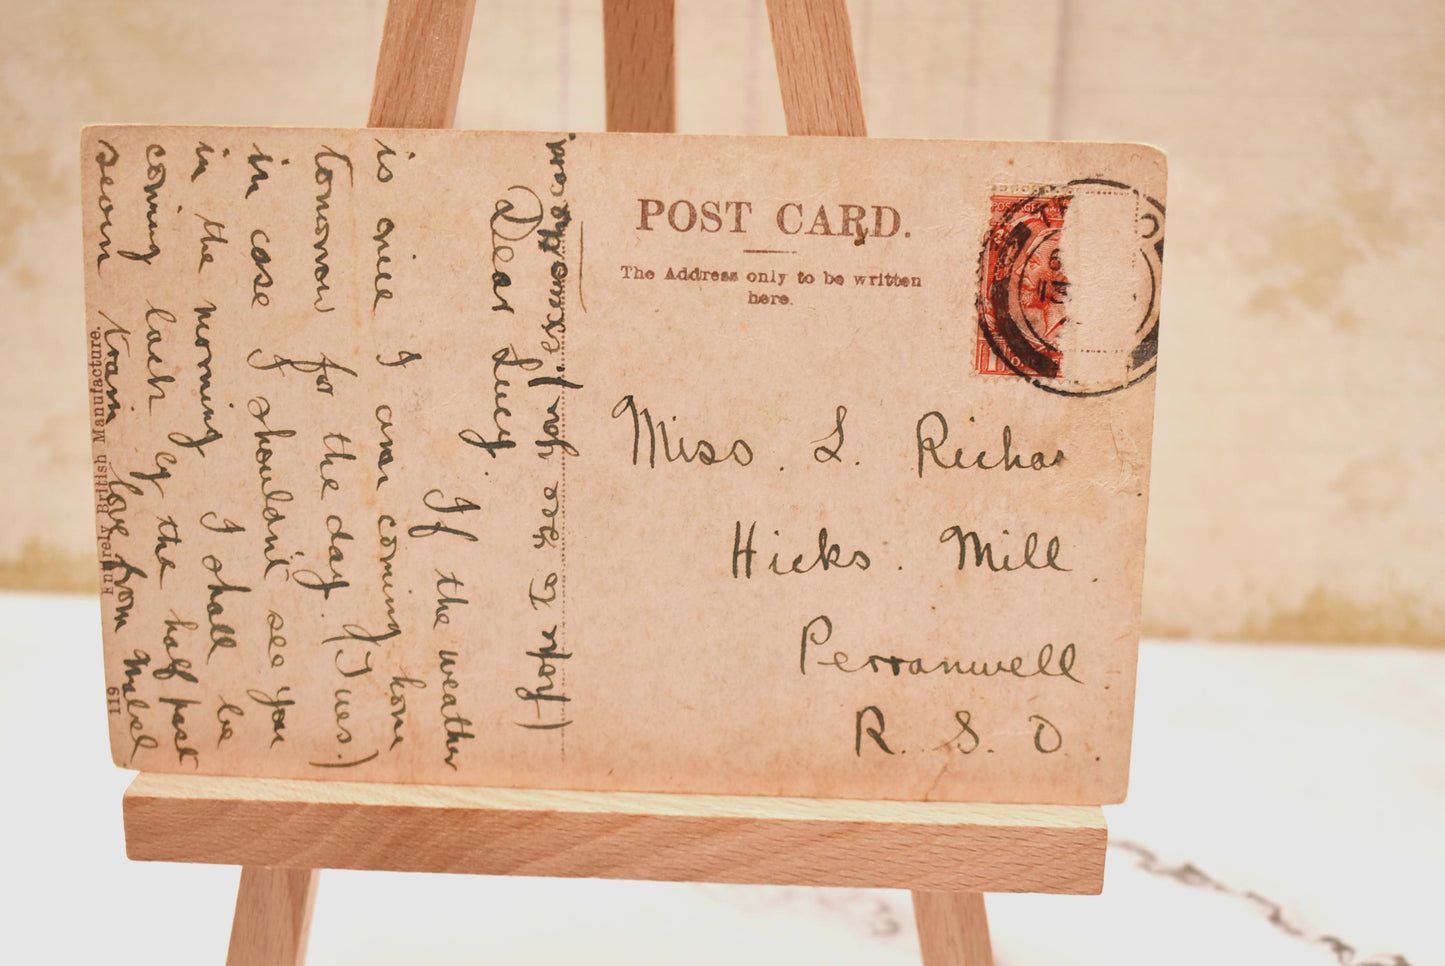 POST CARD.
The Address only to be written
here.
POSTAGE
Miss. L. Richar
Hicks. Mill.
Perranwell.
R. S. O.
(hope to see you). excuse the card.
Dear Lucy.
If the weather
is nice I am coming home
tomorrow for the day. (Tues.)
in case I shouldn't see you
in the morning I shall be
coming back by the half past
seven train love from Mabel
Purely British Manufacture.